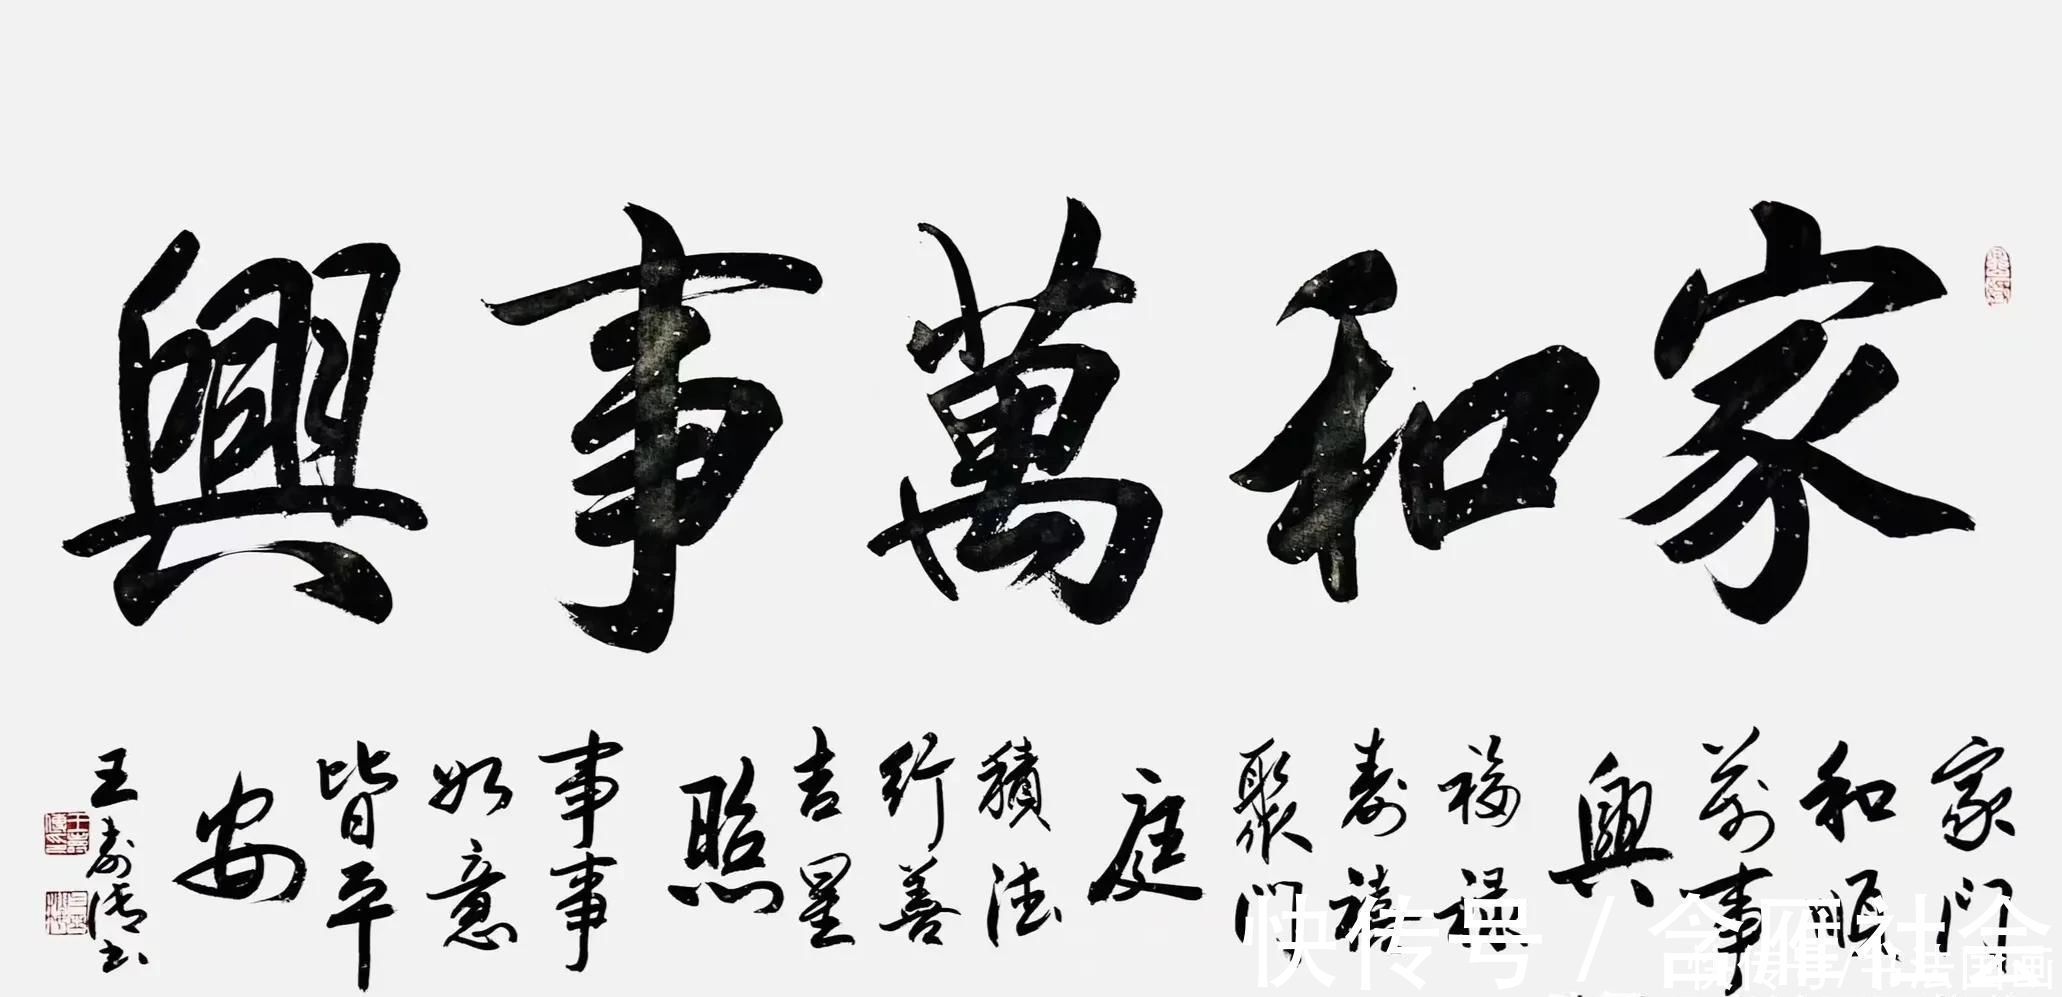 家和萬事興
家門
和順
萬事
興
福禄
壽禧
聚門
庭
積德
行善
吉星
照
事事
如意
皆平
安
王壽書
快传号 / 含雁社会